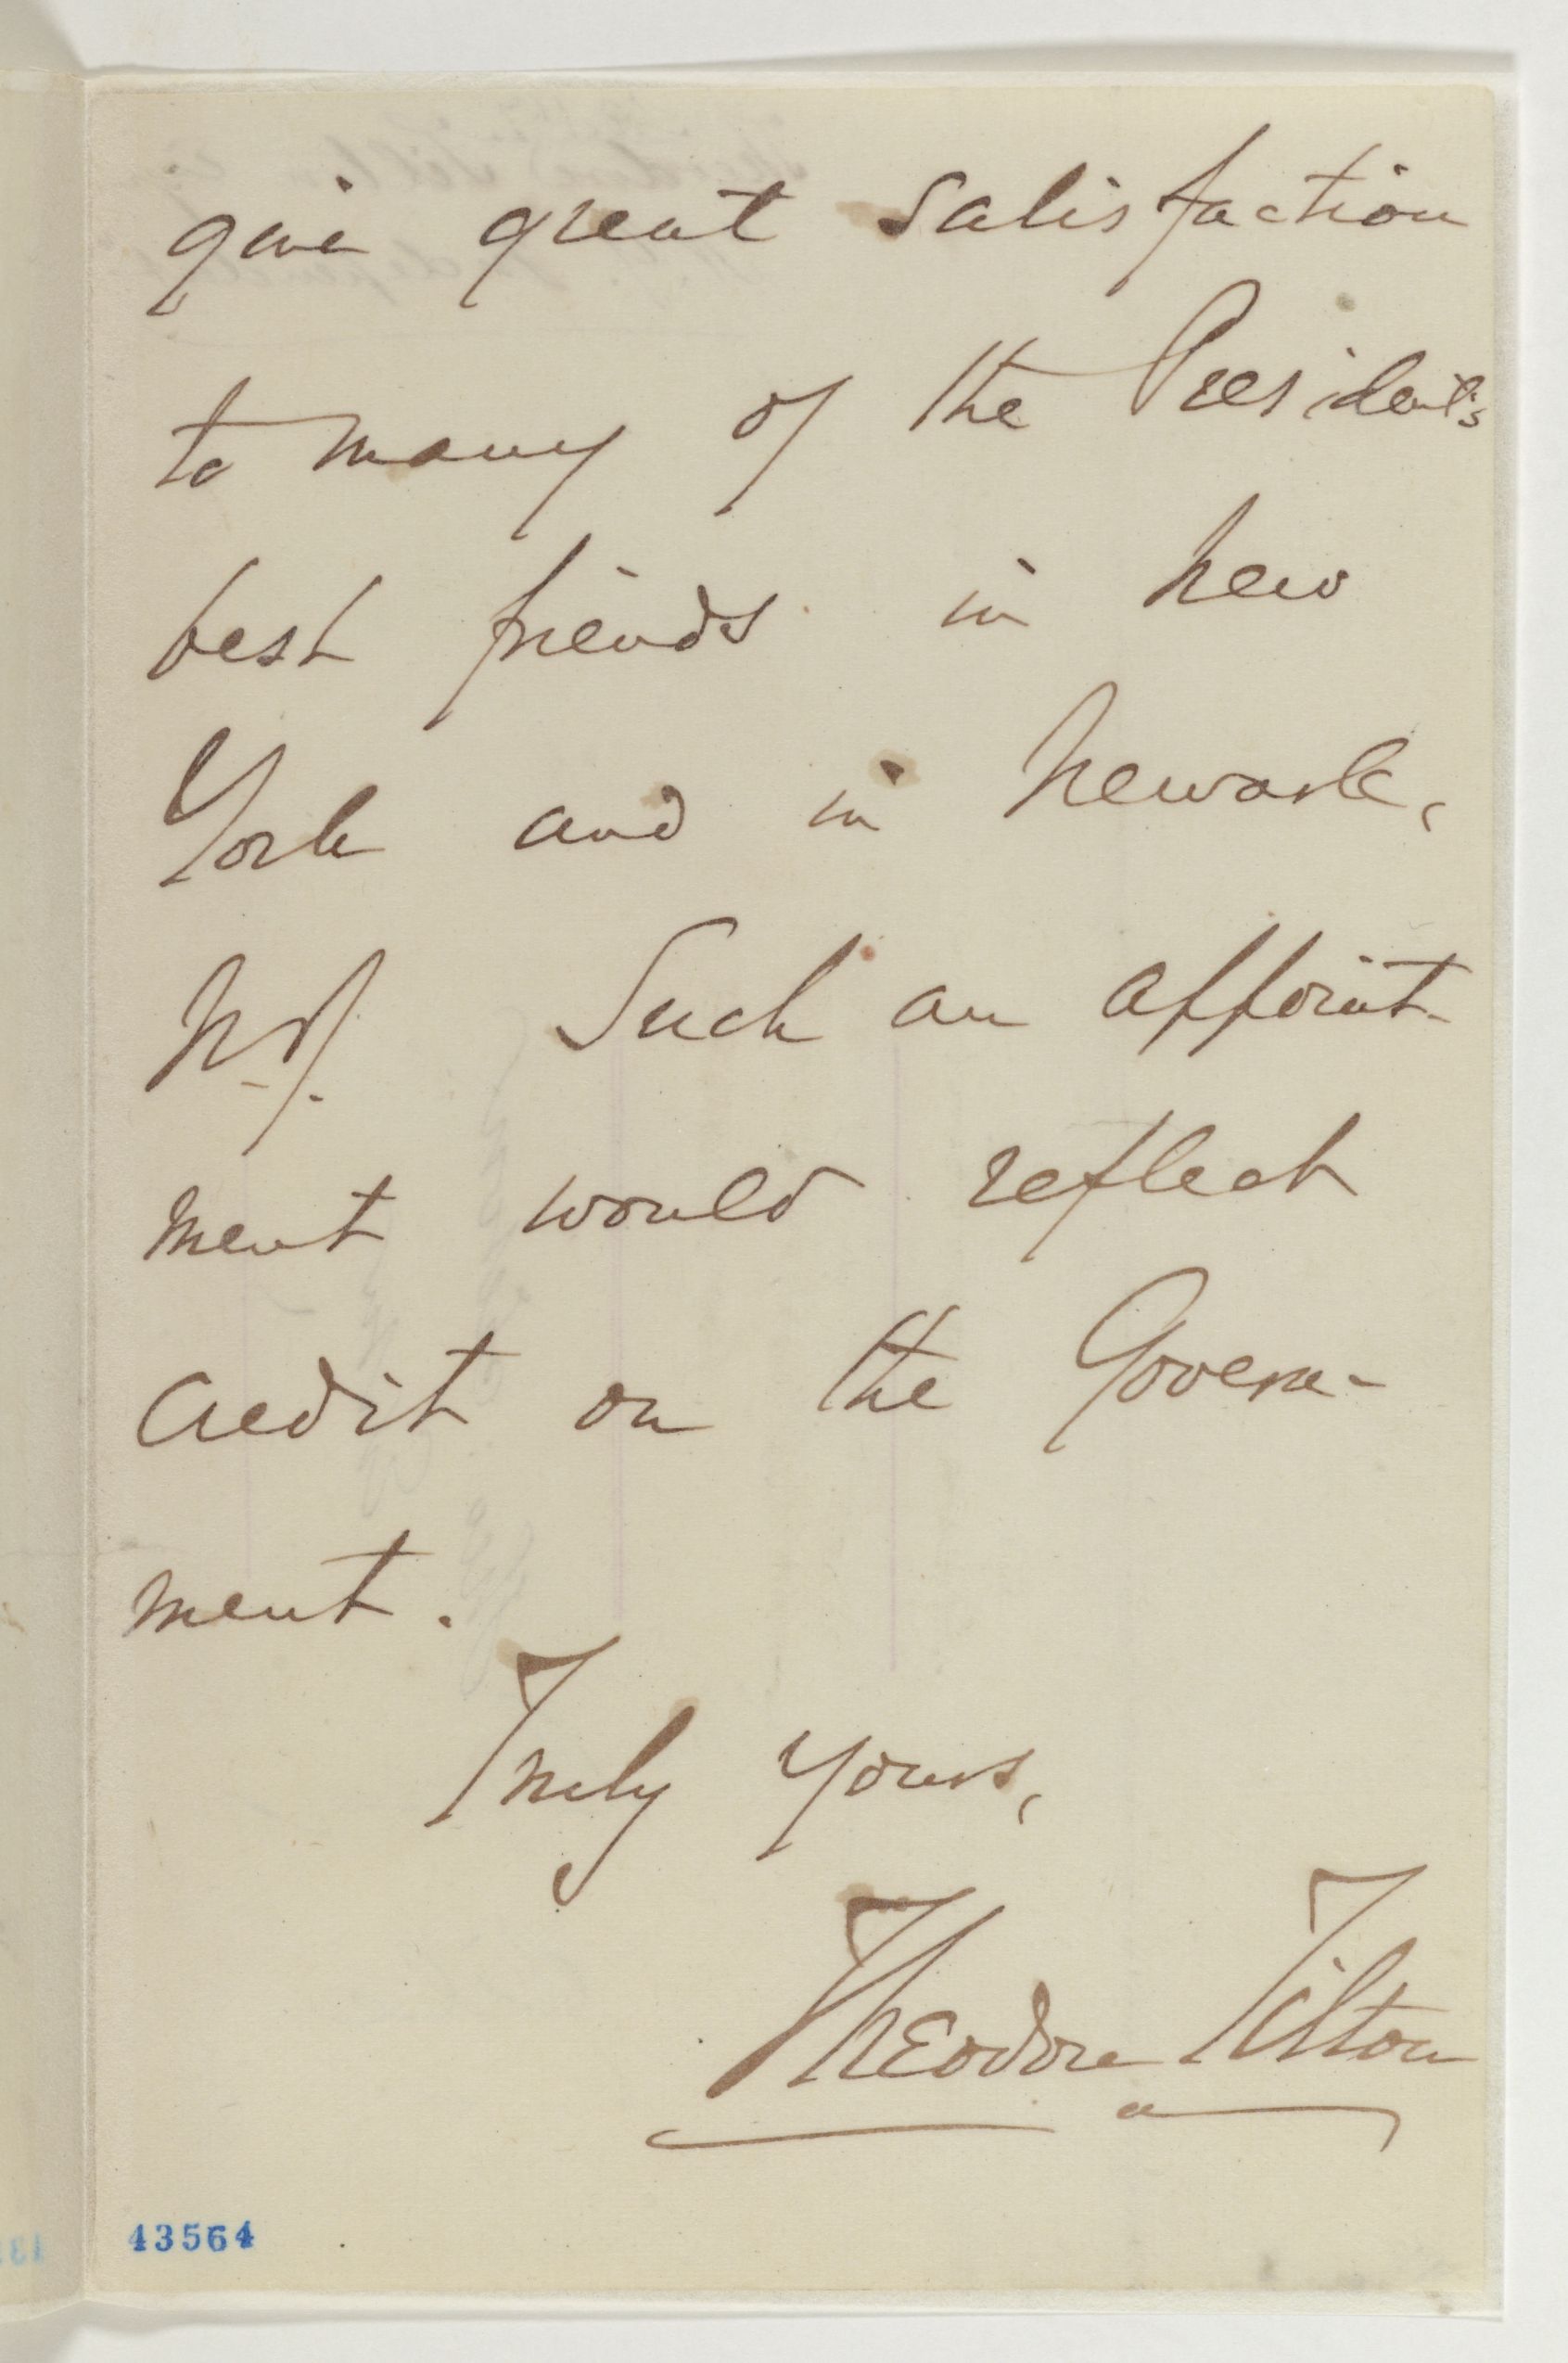 give great satisfaction
to many of the President's
best friends in New
York and in Newark,
N.J. Such an appoint-
ment would reflect
credit on the Govern-
ment.
Truly yours,
Theodore Tilton
43564